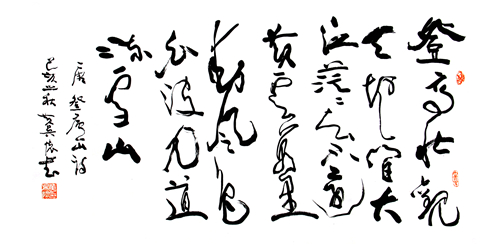 登高壮观
天地间大
江茫々去不还
黄云万里
动风色
白波九道
流雪山
登庐山诗
己亥之秋 书